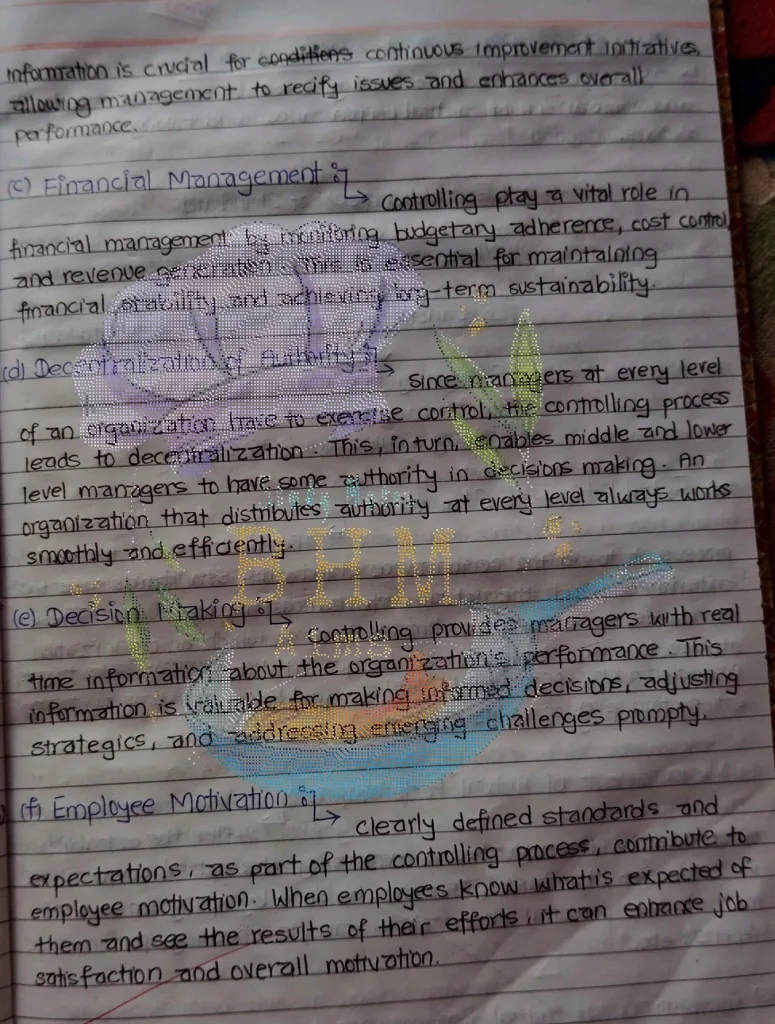 information is crucial for conditions continuous improvement initiatives,
allowing management to recify issues and enhances overall
performance.
(c) Financial Management :
Controlling play a vital role in
financial management by monitoring budgetary adherence, cost control,
and revenue generation. This is essential for maintaining
financial stability and achieving long-term sustainability.
(d) Decentralization of Authority :
Since managers at every level
of an organization have to exercise control, the controlling process
leads to decentralization. This, in turn, enables middle and lower
level managers to have some authority in decisions making. An
organization that distributes authority at every level always works
smoothly and efficiently.
BHM
(e) Decision Making :
Controlling provides managers with real
time information about the organization's performance. This
information is valuable for making informed decisions, adjusting
strategics, and addressing emerging challenges prompty.
(f) Employee Motivation :
clearly defined standards and
expectations, as part of the controlling process, contribute to
employee motivation. When employees know what is expected of
them and see the results of their efforts, it can enhance job
satisfaction and overall motivation.